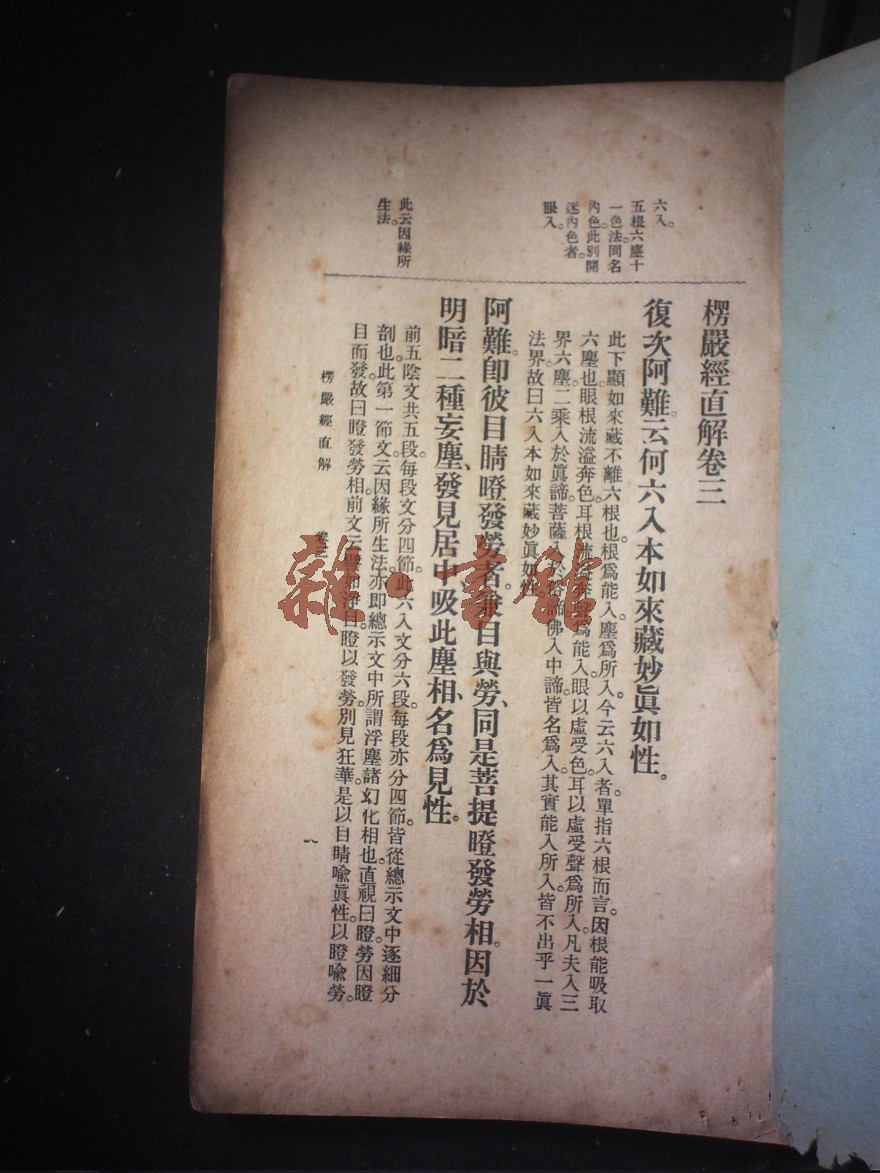 六入。
五根六塵十
一色法。同名
內色此別開
迷內色者。
眼入。
此云因緣所
生法。
楞嚴經直解卷三
復次阿難。云何六入本如來藏妙眞如性。
此下顯如來藏不離六根也。根爲能入塵爲所入。今云六入者。單指六根而言。因根能吸取
六塵也。眼根流溢奔色。耳根流溢奔聲爲能入。眼以虛受色。耳以虛受聲爲所入。凡夫入三
界六塵。二乘入於眞諦。菩薩入於俗諦。佛入中諦。皆名爲入。其實能入所入。皆不出乎一眞
法界。故曰六入本如來藏妙眞如性。
阿難。卽彼目睛瞪發勞者。兼目與勞、同是菩提瞪發勞相。因於
明暗二種妄塵、發見居中吸此塵相、名爲見性。
前五陰文共五段。每段文分四節。此六入文分六段。每段亦分四節。皆從總示文中逐細分
剖也。此第一節文。云因緣所生法。亦即總示文中所謂浮塵諸幻化相也。直視曰瞪。勞因瞪
目而發。故曰瞪發勞相。前文云譬如淨目瞪以發勞。別見狂華。是以目睛喩眞性。以瞪喩勞。
楞嚴經直解 卷三 一
雜·書館